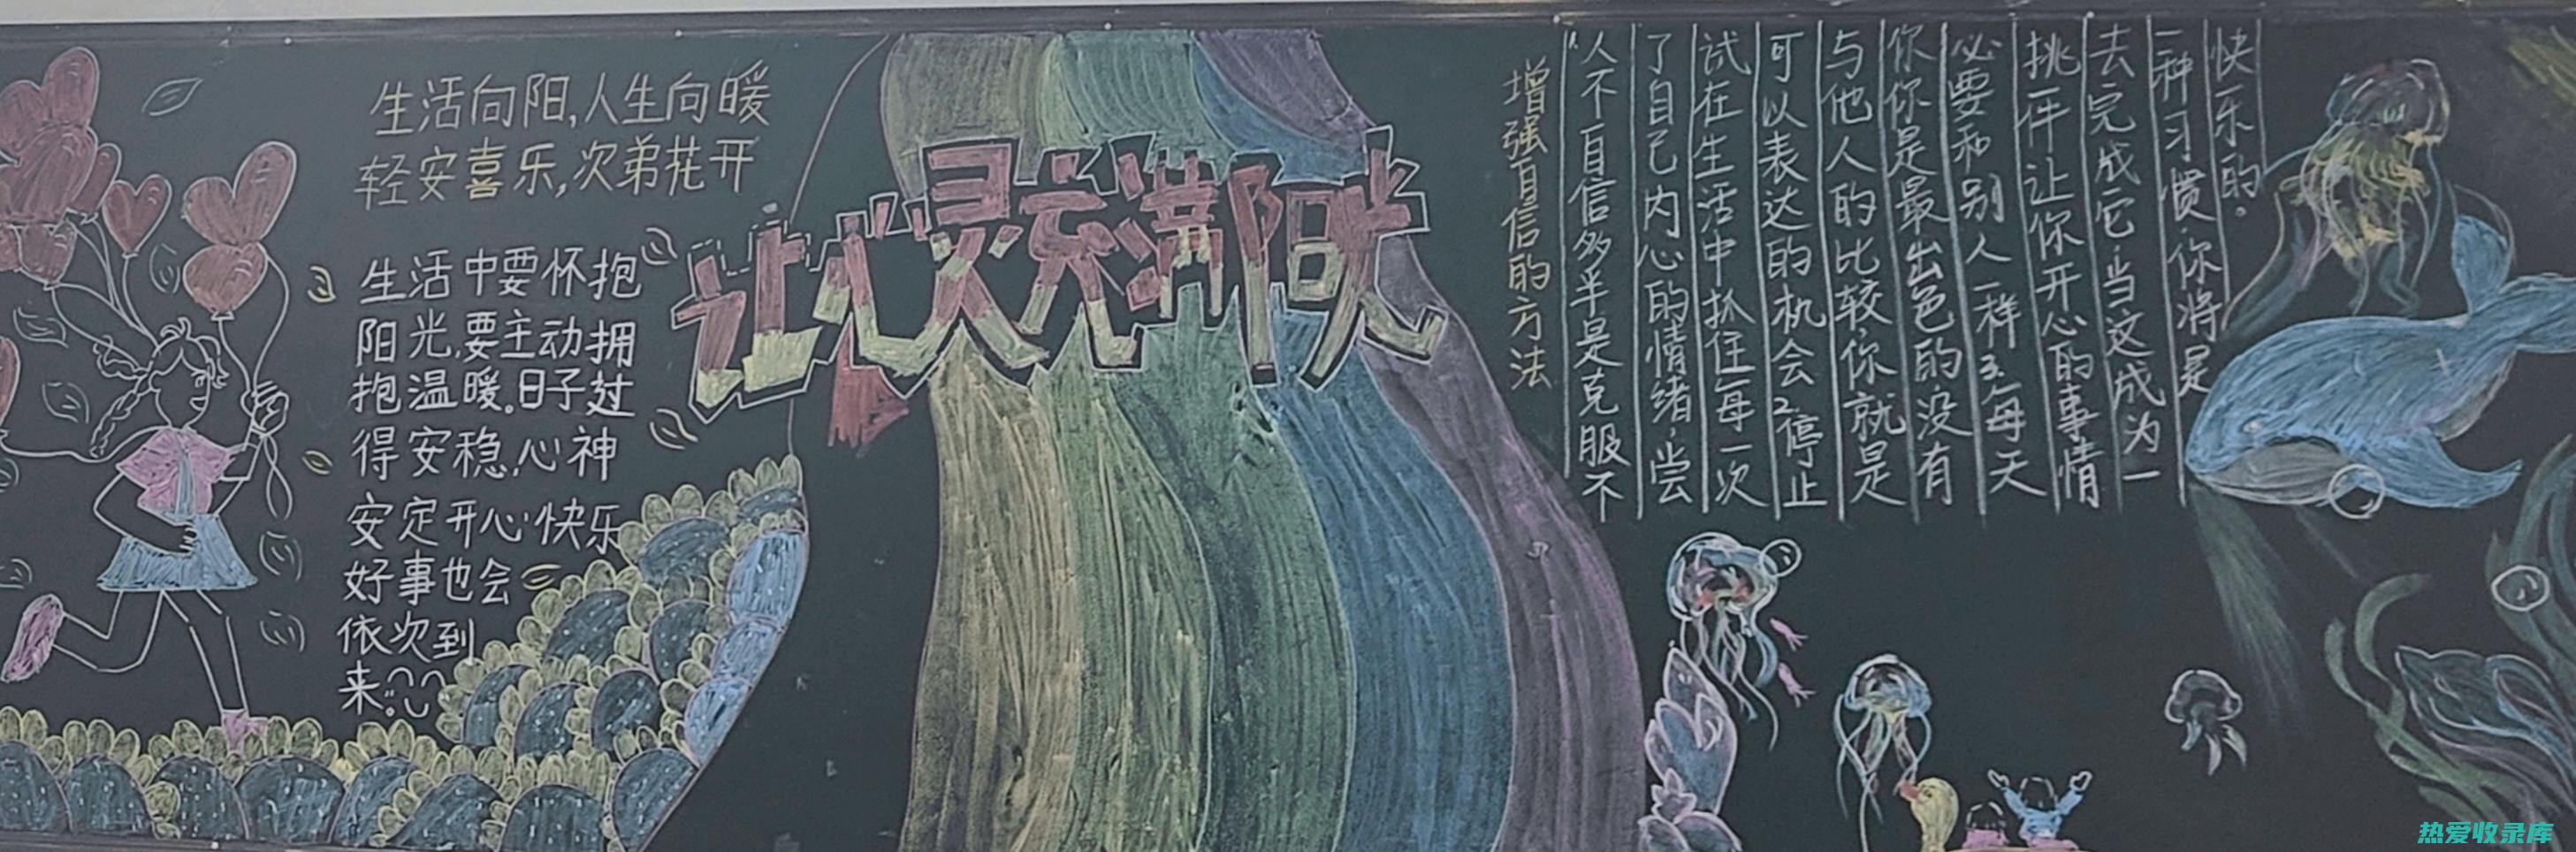 生活向阳,人生向暖
轻安喜乐,次弟花开
生活中要怀抱
阳光,要主动拥
抱温暖。日子过
得安稳,心神
安定开心快乐
好事也会
依次到
来
让心灵充满阳光
增强自信的方法
1.人不自信多半是克服不
了自己内心的情绪,尝
试在生活中抓住每一次
可以表达的机会2.停止
与他人的比较,你就是
你你是最出色的没有
必要和别人一样3.每天
挑一件让你开心的事情
去完成它,当这成为一
一种习惯,你将是
快乐的。
热爱收录库